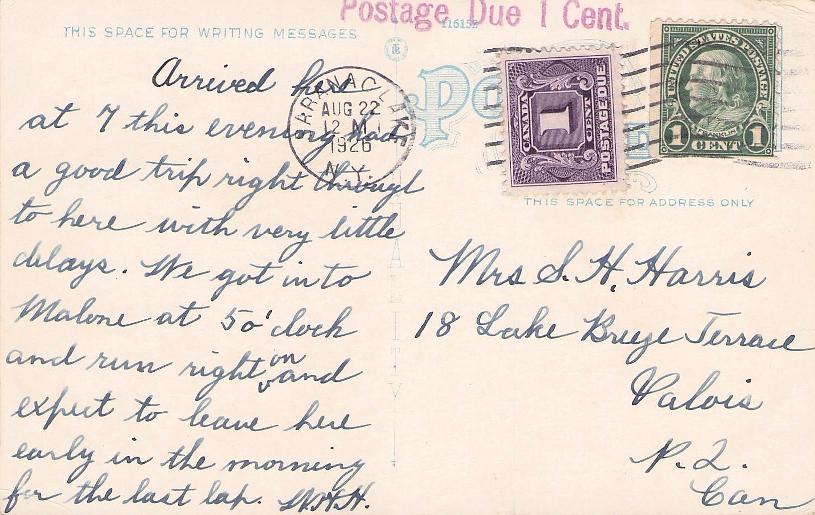 Postage Due 1 Cent.
116152
THIS SPACE FOR WRITING MESSAGES
SARANAC LAKE
AUG 22
12 M
1926
N.Y.
CANADA
1
CENT
POSTAGE DUE
UNITED STATES POSTAGE
FRANKLIN
1 CENT 1
THIS SPACE FOR ADDRESS ONLY
Arrived here
at 7 this evening had
a good trip right through
to here with very little
delays. We got into
Malone at 5 o'clock
and run right on and
expect to leave here
early in the morning
for the last lap. S.H.H.
Mrs S. H. Harris
18 Lake Breeze Terrace
Valois
P.Q.
Can